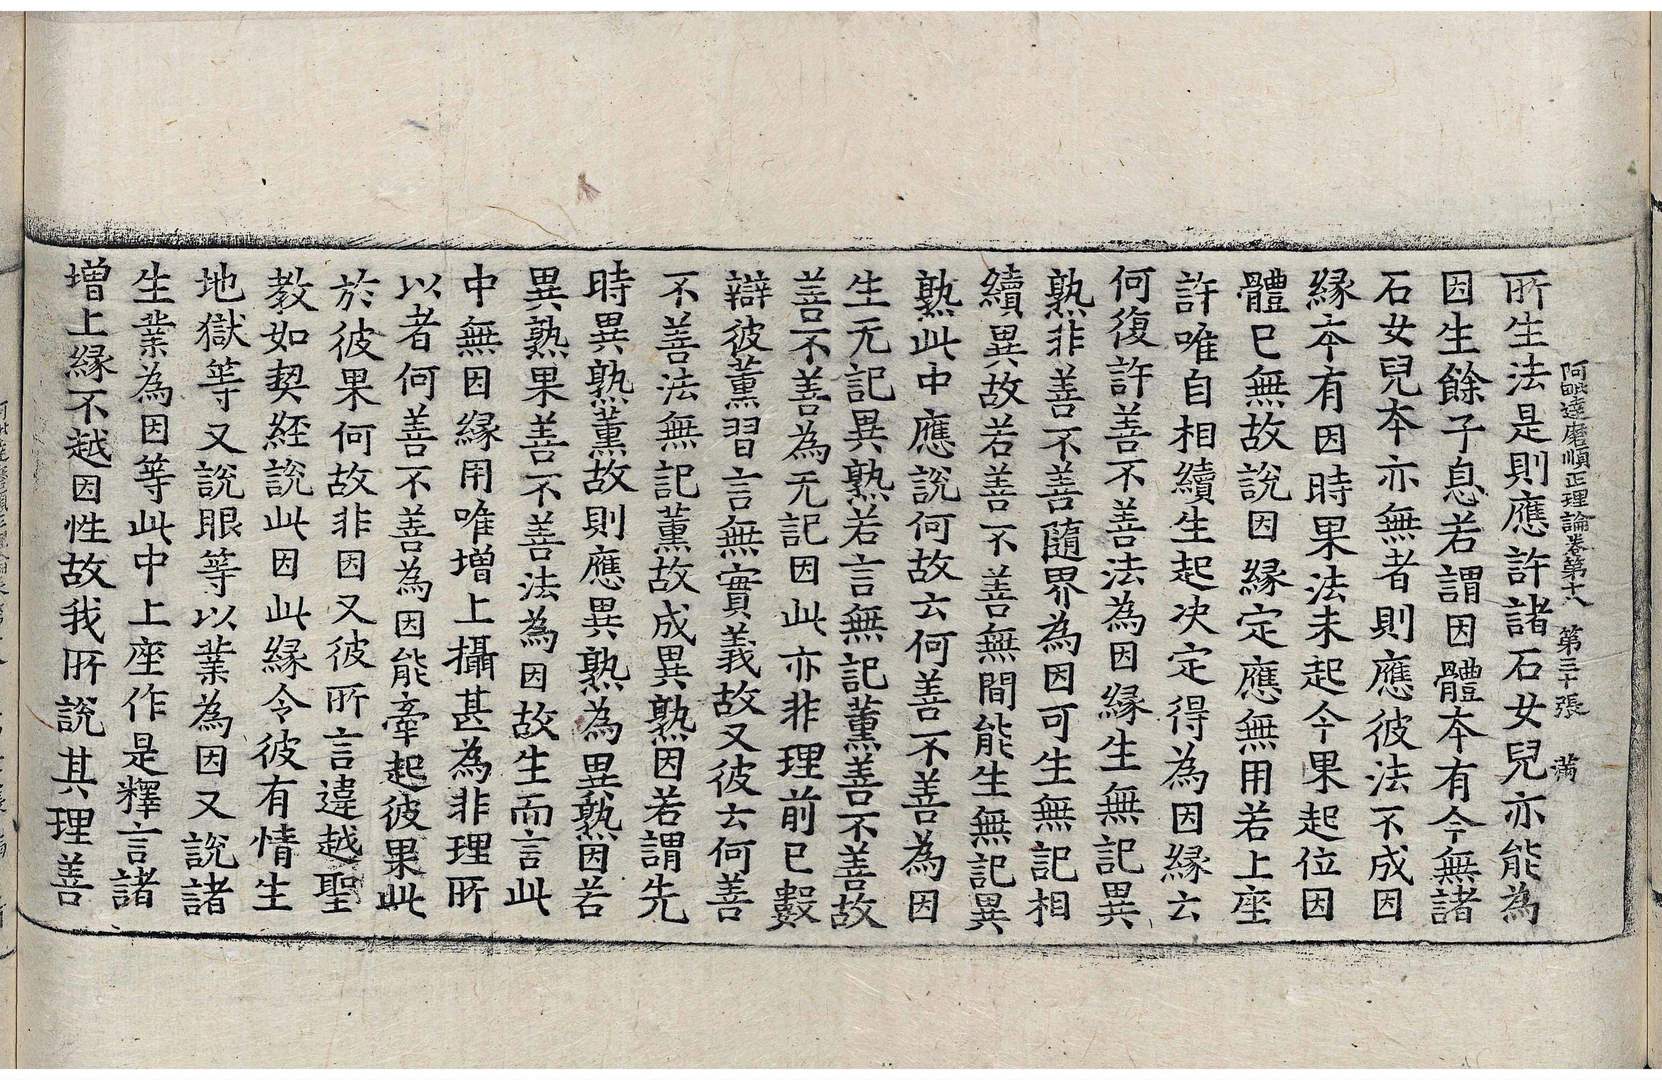 阿毗達磨順正理論卷第十八　第三十張　滿
所生法是則應許諸石女兒亦能為
因生餘子息若謂因體本有今無諸
石女兒本亦無者則應彼法不成因
緣本有因時果法未起今果起位因
體已無故說因緣定應無用若上座
許唯自相續生起決定得為因緣云
何復許善不善法為因緣生無記異
熟非善不善隨界為因可生無記相
續異故若善不善無間能生無記異
熟此中應說何故云何善不善為因
生无記異熟若言無記薰善不善故
善不善為无記因此亦非理前已數
辯彼薰習言無實義故又彼云何善
不善法無記薰故成異熟因若謂先
時異熟薰故則應異熟為異熟因若
異熟果善不善法為因故生而言此
中無因緣用唯增上攝甚為非理所
以者何善不善為因能牽起彼果此
於彼果何故非因又彼所言違越聖
教如契經說此因此緣令彼有情生
地獄等又說眼等以業為因又說諸
生業為因等此中上座作是釋言諸
增上緣不越因性故我所說其理善